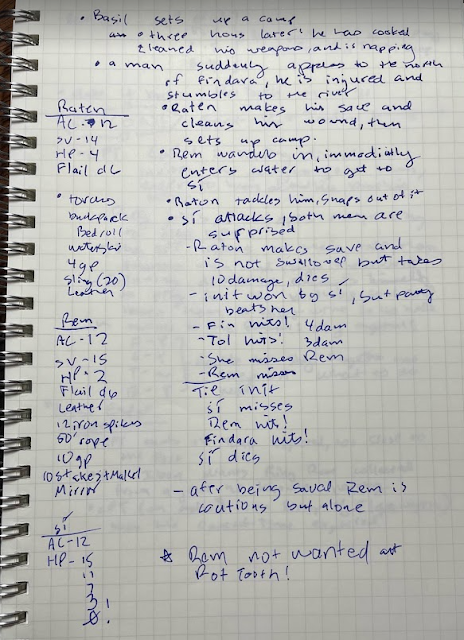 • Basil sets up a camp
• three hours later! he has cooked
cleaned his weapons, and is napping
• a man suddenly appears to the north
of Findara, he is injured and
stumbles to the river
• Raten makes his save and
cleans his wound, then
sets up camp.
• Rem wanders in, immediatly
enters water to get to
Sí
• Raton tackles him, snaps out of it
• Sí attacks, both men are
surprised
- Raton makes save and
is not swallowed but takes
10 damage, dies
- init won by Sí, but party
beats her
- Fin hits! 4dam
- Tol hits! 3dam
- She misses Rem
- Rem misses
Tie init
Sí misses
Rem hits!
Findara hits!
Sí dies
- after being saved Rem is
cautious but alone
☆ Rem not wanted at
Rot Tooth!
Raten
AC-12
SV-14
HP-4
Flail d6
• torches
backpack
Bedroll
waterskin
4gp
Sling (20)
Leather
Rem
AC-12
SV-15
HP-2
Flail d6
Leather
12 iron spikes
50' rope
10gp
10 Stakes + Mallet
Mirror
Sí
AC-12
HP-15
11
7
3!
0!